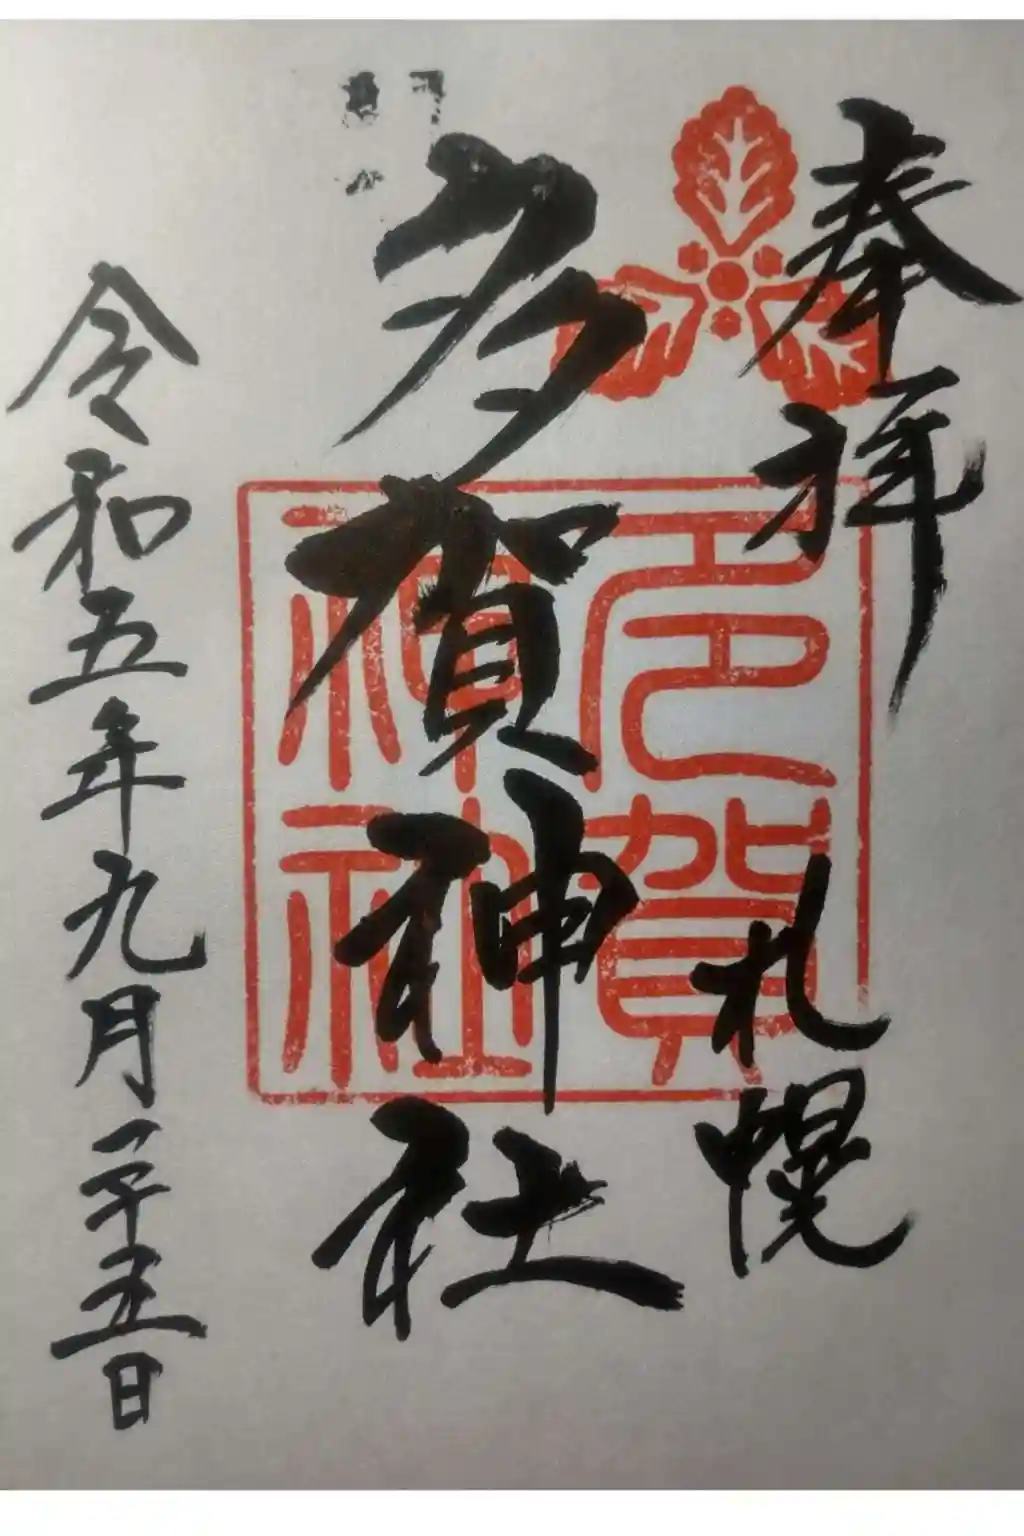 奉拝
札幌
多賀神社
令和五年九月二十五日
多賀
神社